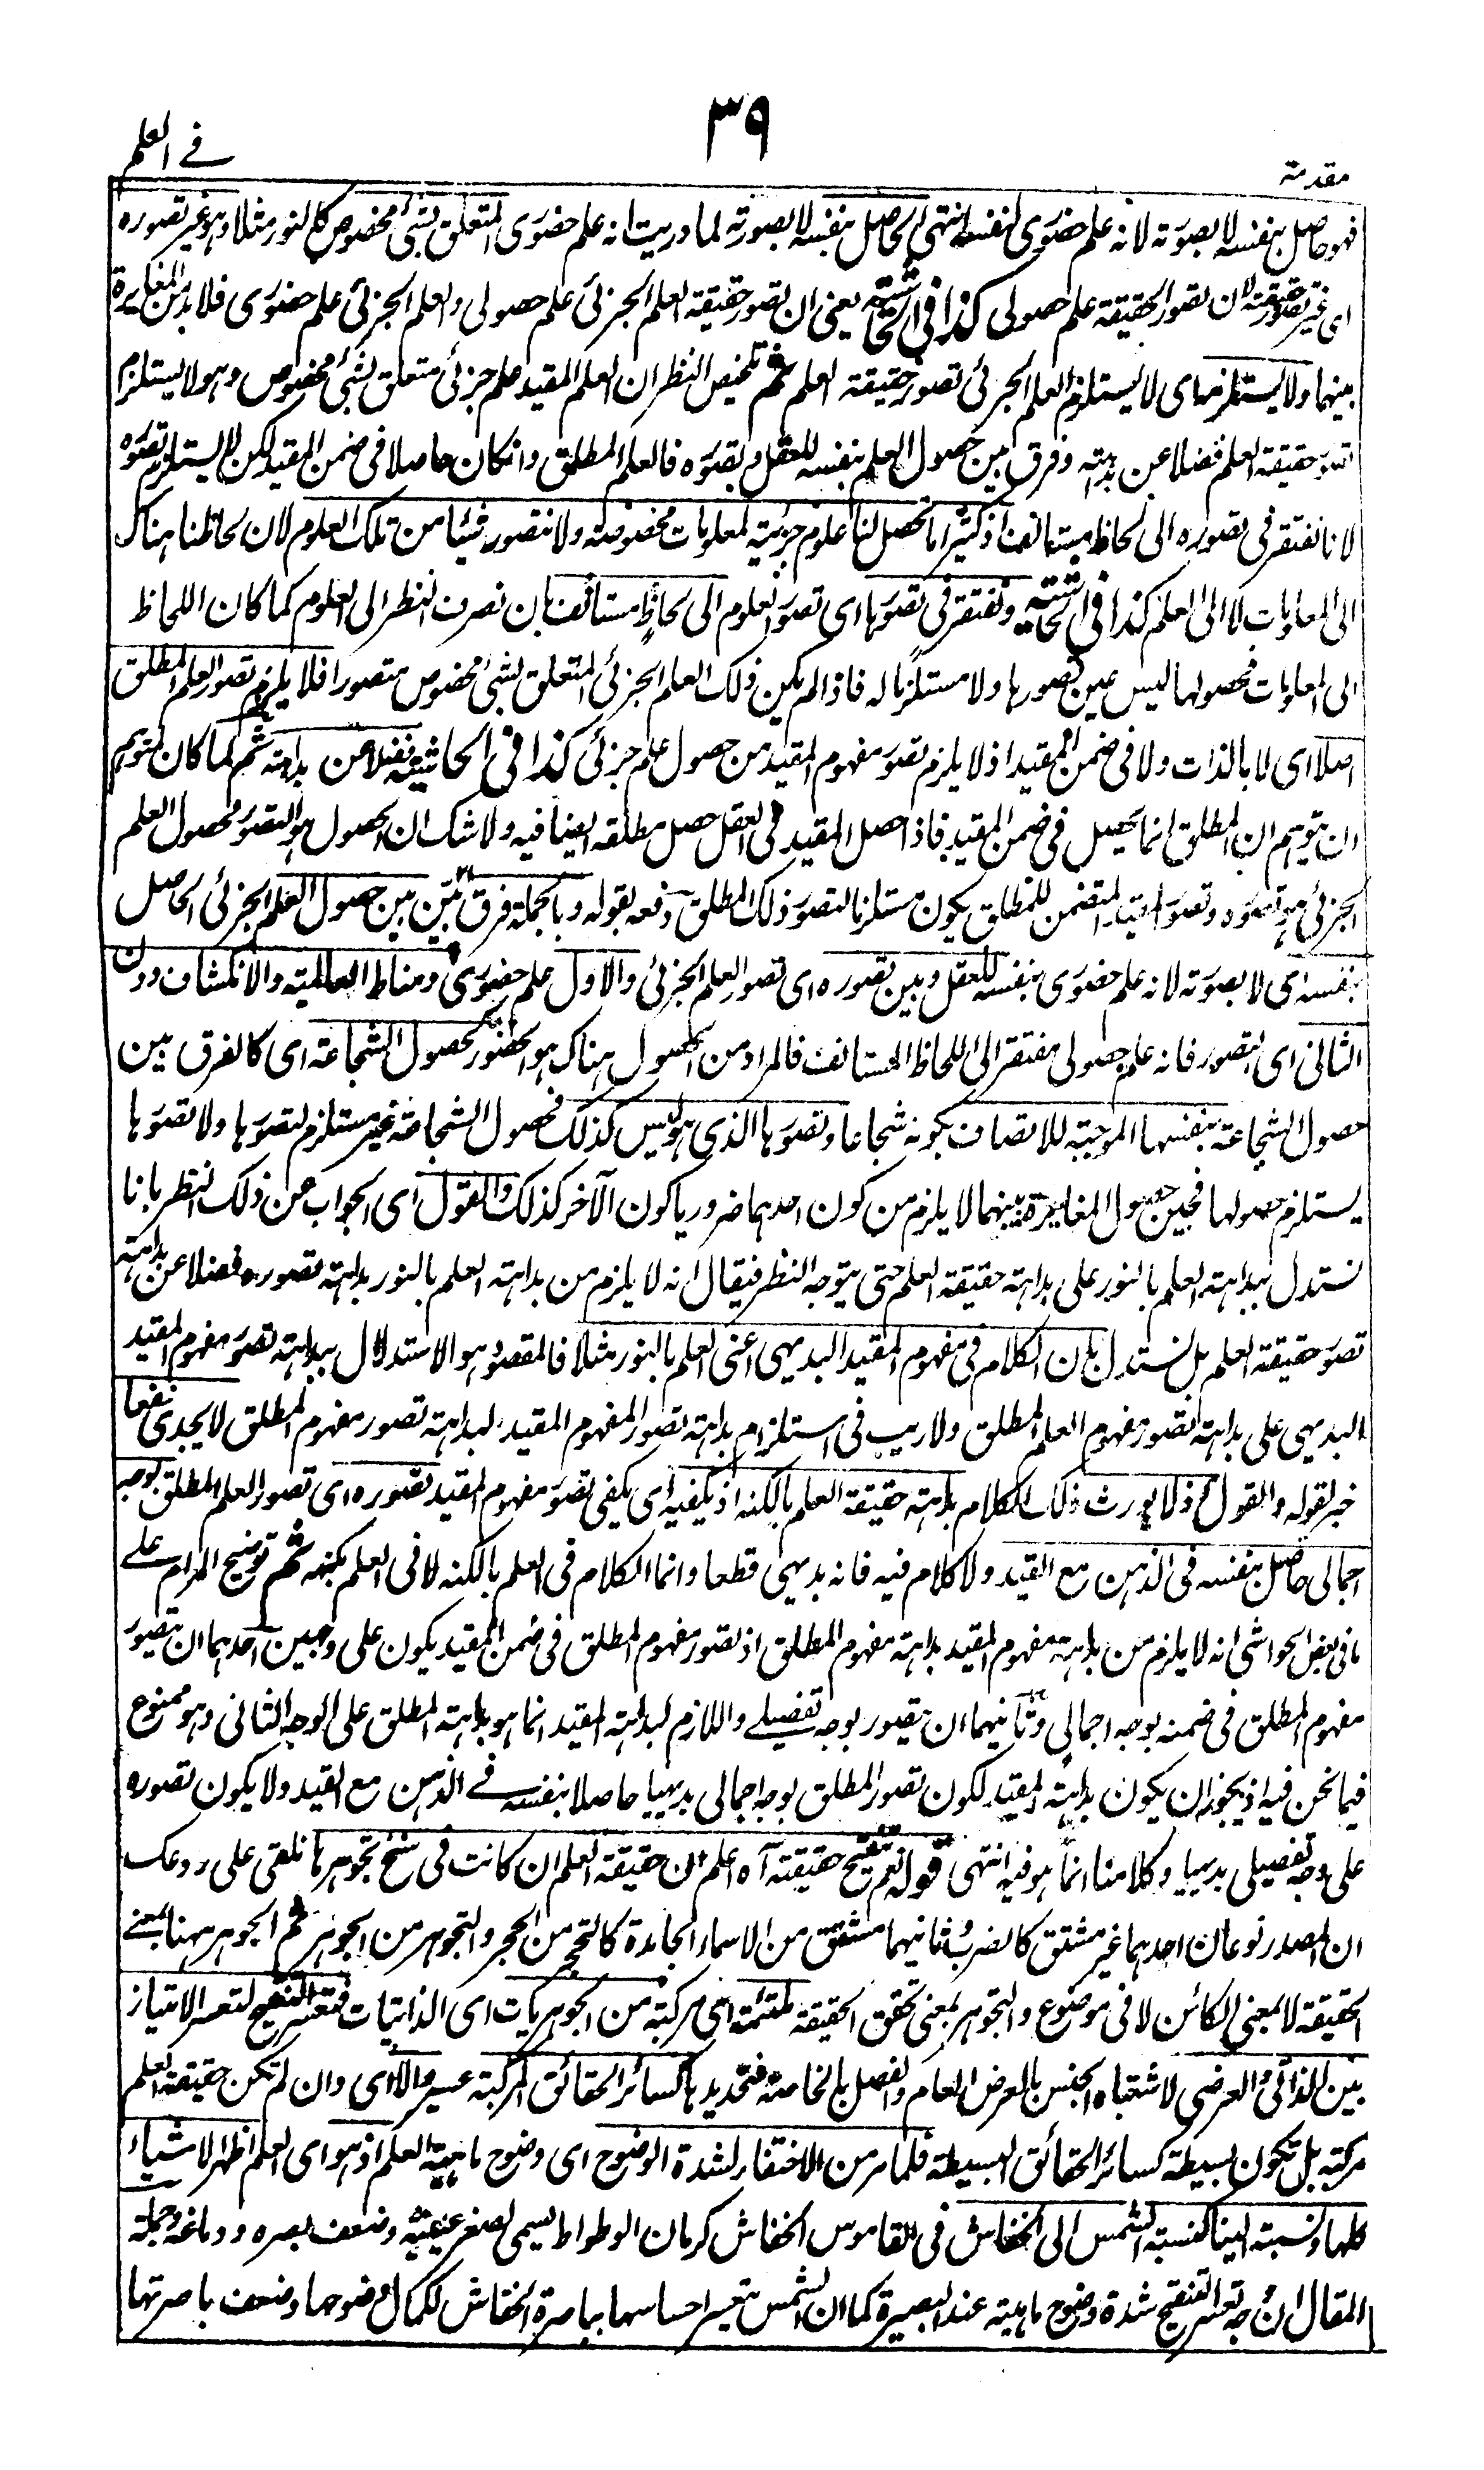 ٣٩
في العلم
مقدمة
فهو حاصل بنفسه لا بصورته لانه علم حضوري لنفسه انتهى الحاصل بنفسه لا بصورته لما دريت انه علم حضوري المتعلق بشئ مخصوص كالنور مثلا وهو غير تصوره
اي غير تصور حقيقته لان تصور الحقيقة علم حصولي كذا في الحاشية يعني ان تصور حقيقة العلم الجزئي علم حصولي والعلم الجزئي علم حضوري فلا بد من المغايرة
بينهما ولا يستلزمه اي لا يستلزم العلم الجزئي تصور حقيقة العلم ثم تلخيص النظر ان العلم المقيد علم جزئي متعلق بشئ مخصوص وهو لا يستلزم
تصور حقيقة العلم فضلا عن بداهته وفرق بين حصول العلم بنفسه للعقل وبتصوره فالعلم المطلق وانكان حاصلا في ضمن المقيد لكن لا يستلزم تصوره
لانا نفتقر في تصوره الى لحاظ مستانف اذ كثيرا ما تحصل لنا علوم جزئية لمعلومات مخصوصة ولا نتصور شيئا من تلك العلوم لان لحاظنا هناك
الى المعلومات لا الى العلم كذا في الحاشية ونفتقر في تصورها اي تصور العلوم الى لحاظ مستانف بان نصرف النظر الى العلوم كما كان اللحاظ
الى المعلومات فحصولها ليس عين تصورها ولا مستلزما له فاذا لم يكن ذلك العلم الجزئي المتعلق بشئ مخصوص متصورا فلا يلزم تصور العلم المطلق
اصلا اي لا بالذات ولا في ضمن المقيد اذ لا يلزم تصور مفهوم المقيد من حصول علم جزئي كذا في الحاشية فضلا عن بداهته ثم لما كان لمتوهم
ان يتوهم ان المطلق انما يحصل في ضمن المقيد فاذا حصل المقيد في العقل حصل مطلقه ايضا فيه ولا شك ان الحصول هو التصور فحصول العلم
الجزئي هو تصوره وتصور المقيد المتضمن للمطلق يكون مستلزما لتصور ذلك المطلق دفعه بقوله وبالجملة فرق بين بين حصول العلم الجزئي الحاصل
بنفسه اي لا بصورته لانه علم حضوري بنفسه للعقل وبين تصوره اي تصور العلم الجزئي والاول علم حضوري ومناط العالمية والانكشاف دون
الثاني اي التصور فانه علم حصولي مفتقر الى اللحاظ المستانف فالمراد من الحصول هناك هو الحضور كحصول الشجاعة اي كالفرق بين
حصول الشجاعة بنفسها الموجبة للاتصاف بكونه شجاعا وتصورها الذي هو ليس كذلك فحصول الشجاعة غير مستلزم لتصورها ولا تصورها
يستلزم حصولها فحين حصول المغايرة بينهما لا يلزم من كون احدهما ضروريا كون الآخر كذلك والقول اي الجواب عن ذلك النظر بانا
نستدل ببداهة العلم بالنور على بداهة حقيقة العلم حتى يتوجه النظر فيقال انه لا يلزم من بداهة العلم بالنور بداهة تصوره فضلا عن بداهة
تصور حقيقة العلم بل نستدل بان الكلام في مفهوم المقيد البديهي اعني العلم بالنور مثلا فالمقصود هو الاستدلال ببداهة تصور مفهوم المقيد
البديهي على بداهة تصور مفهوم العلم المطلق ولا ريب في استلزام بداهة تصور المفهوم المقيد لبداهة تصور مفهوم المطلق لا يجدي نفعا
خبر لقوله والقول اذ لا يورث ذلك الكلام بداهة حقيقة العلم بالكنه اذ يكفيه اي يكفي تصور مفهوم المقيد تصوره اي تصور العلم المطلق بوجه
اجمالي حاصل بنفسه في الذهن مع القيد ولا كلام فيه فانه بديهي قطعا وانما الكلام في العلم بالكنه لا في العلم بكنهه ثم توضيح المرام على
ما في بعض الحواشي انه لا يلزم من بداهة مفهوم المقيد بداهة مفهوم المطلق اذ تصور مفهوم المطلق في ضمن المقيد يكون على وجهين احدهما ان يتصور
مفهوم المطلق في ضمنه بوجه اجمالي وثانيهما ان يتصور بوجه تفصيلي واللازم لبداهة المقيد انما هو بداهة المطلق على الوجه الثاني وهو ممنوع
فيما نحن فيه اذ يجوز ان يكون بداهة المقيد لكون تصور المطلق بوجه اجمالي بديهيا حاصلا بنفسه في الذهن مع القيد ولا يكون تصوره
على وجه تفصيلي بديهيا وكلامنا انما هو فيه انتهى قوله نعم تنقيح حقيقته آه اعلم ان حقيقة العلم ان كانت في سنخ تجوهرها نلقي على روعك
ان المصدر نوعان احدهما غير مشتق كالضرب وثانيهما مشتق من الاسماء الجامدة كالتحجر من الحجر والتجوهر من الجوهر ثم الجوهر ههنا بمعنى
الحقيقة لا بمعنى الكائن لا في موضوع والتجوهر بمعنى تحقق الحقيقة ملتئمة اي مركبة من الجوهريات اي الذاتيات فتعسر التنقيح لتعسر الامتياز
بين الذاتي والعرضي لاشتباه الجنس بالعرض العام والفصل بالخاصة فتحديدها كسائر الحقائق المركبة عسير والا اي وان لم تكن حقيقة العلم
مركبة بل تكون بسيطة كسائر الحقائق البسيطة فلما مر من الاختفاء لشدة الوضوح اي وضوح ماهية العلم اذ هو اي العلم اظهر الاشياء
كلها ونسبته الينا كنسبة الشمس الى الخفاش في القاموس الخفاش كرمان الوطواط يسمى لصغر عينيه وضعف بصره ودماغه وجملة
المقال ان وجه تعسر التنقيح شدة وضوح ماهيته عند البصيرة كما ان الشمس يتعسر احساسها بباصرة الخفاش لكمال وضوحها وضعف باصرتها